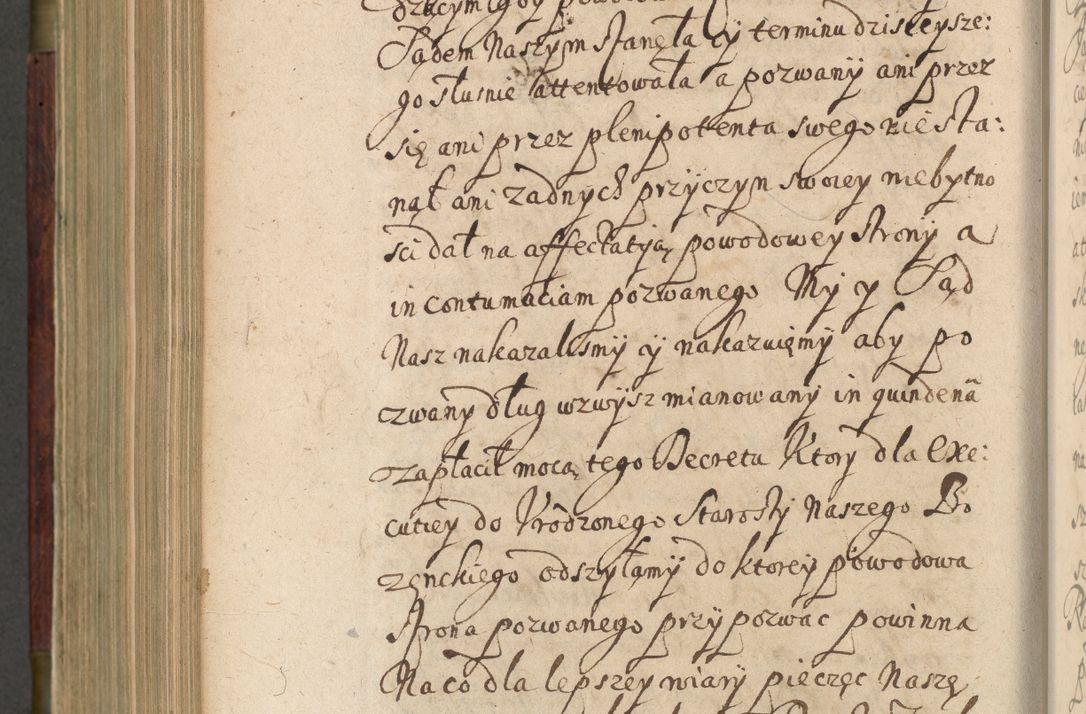 Sądem Naszym stanęła y terminu dzisieysze:
go słusnie attentowała a pozwany ani przez
się ani przez plenipotenta swego nie sta:
nął ani zadnych przyczyn swoiey niebytno
sci dał na affectatią powodowey strony a
in contumaciam pozwanego My y Sąd
Nasz nakazalismy y nakazuięmy aby po
zwany dług wzwysz mianowany in quindenã
zapłacił mocą tego Decretu Ktory dla exe:
cutiey do Urodzonego Starosty Naszego Bo
zęnckiego odszyłamy do ktorey powodowa
strona pozwanego przypozwac powinna
Na co dla lepszey wiary pieczęc Naszę